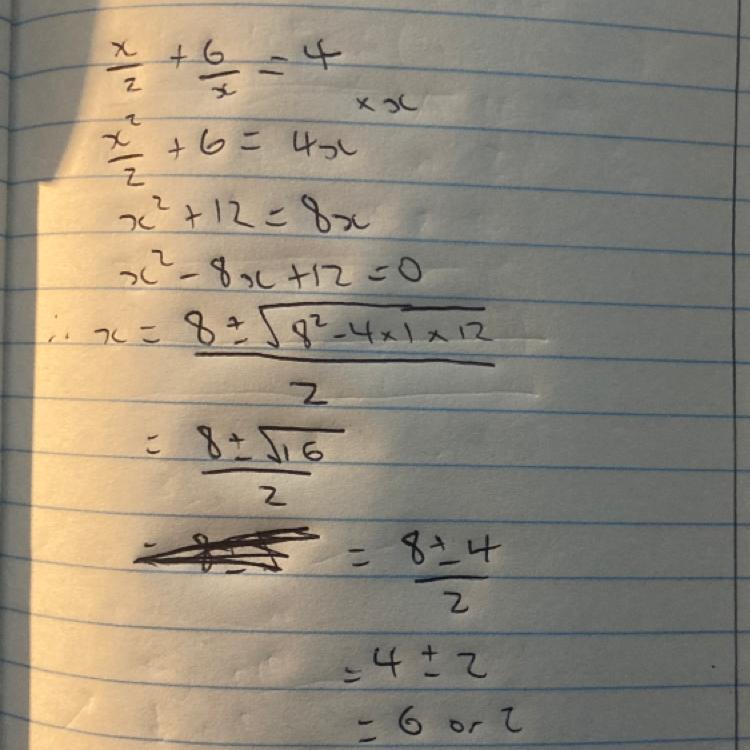 x/2 + 6/x = 4
× x
x²/2 + 6 = 4x
x² + 12 = 8x
x² - 8x + 12 = 0
∴ x = (8 ± √(8² - 4 × 1 × 12))/2
= (8 ± √16)/2
= (8 ± 4)/2
= 4 ± 2
= 6 or 2